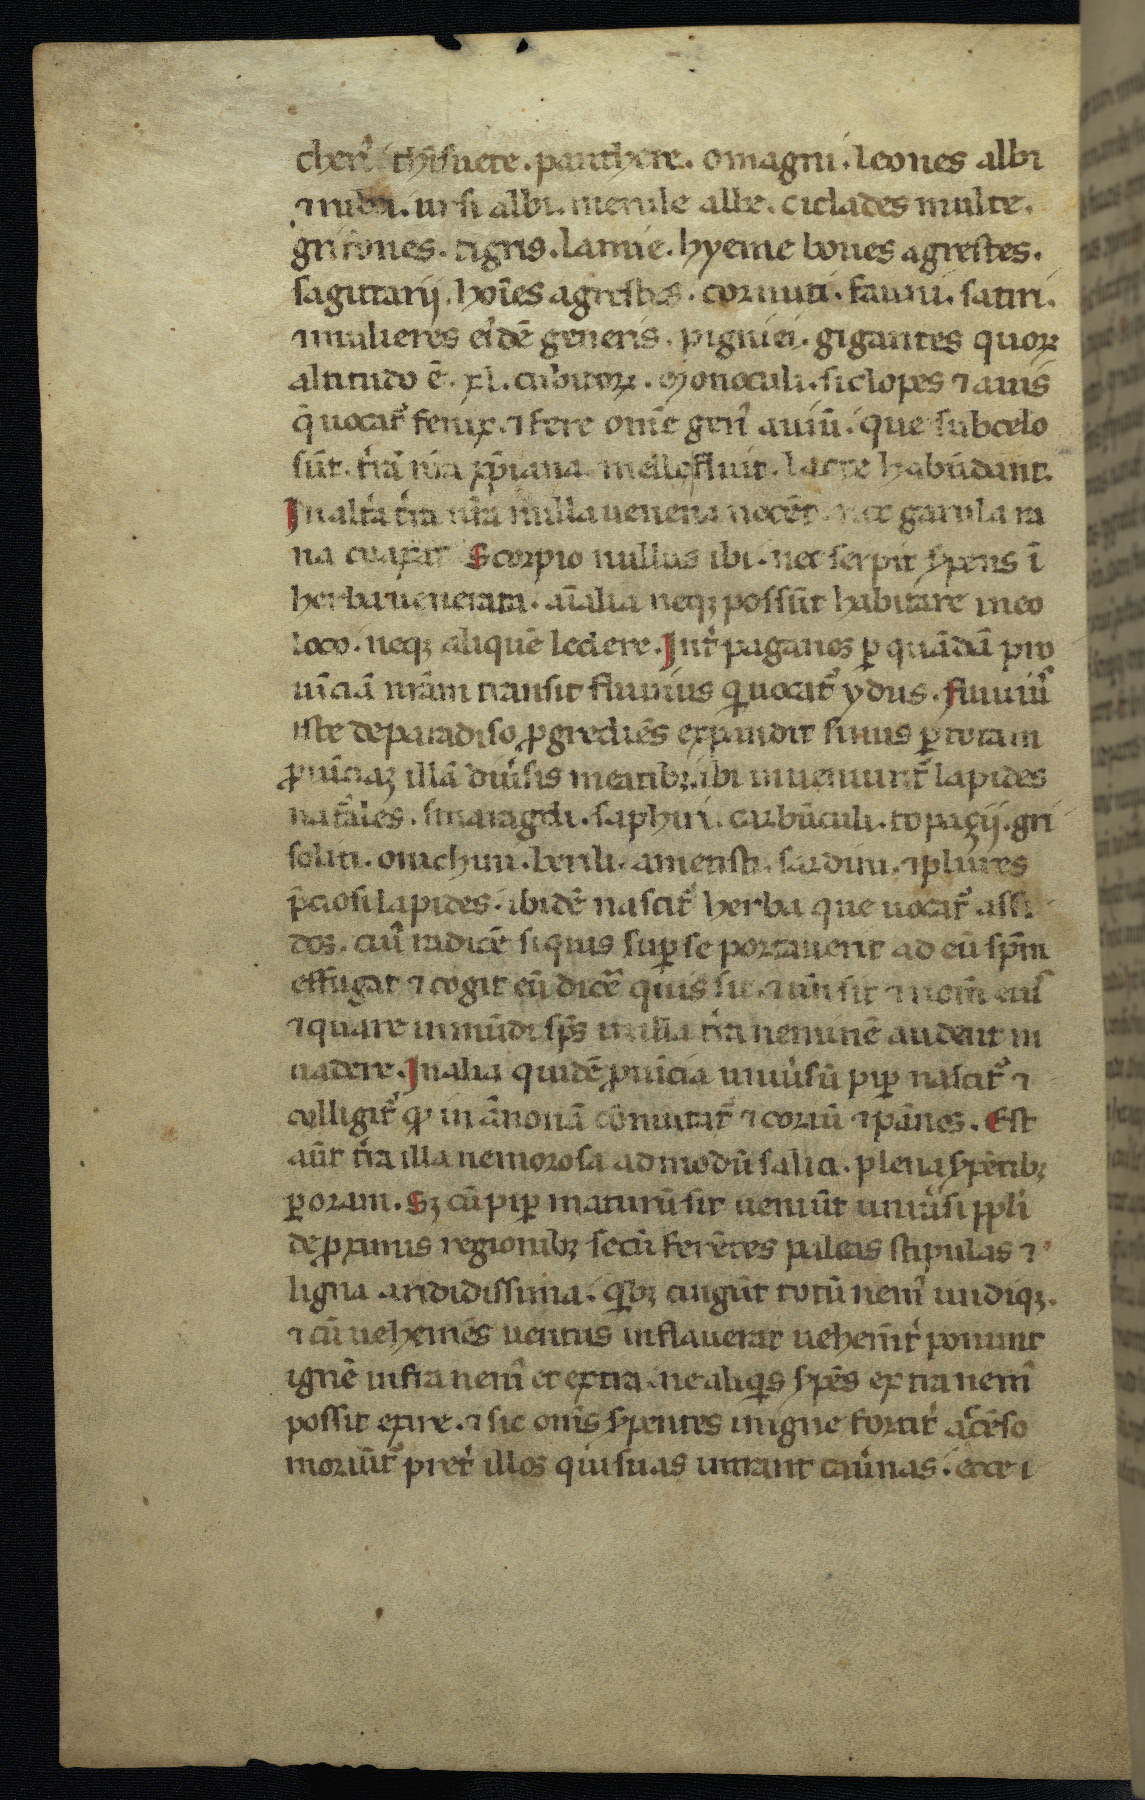 cherꝰ thisuete. panthere. onagri. leones albi
⁊ rubei. ursi albi. merule albe. ciclades multe.
grifones. tigris. lamie. hyeme boues agrestes.
sagittarij. hoīes agrestes. cornuti. fauni. satiri.
⁊ mulieres eiꝰdē generis. pigmei. gigantes quoꝝ
altitudo ē. xl. cubitoꝝ. monoculi. siclopes ⁊ auis
q̄ uocat᷑ fenix. ⁊ fere om̄e genꝰ auiū. que sub celo
sūt. t̄ra nr̄a xp̄iana melle fluit. lacte habūdant.
In alt̄a t̄ra nr̄a nulla uenena nocēt. nec garula ra
na coaxat Scorpio nullus ibi. nec serpit sp̄ens ī
herba uenerata. aīalia neqꝫ possūt habitare in eo
loco. neqꝫ aliquē ledere. Int̄ paganos ꝑ quādā pro
uīciā nr̄am transit fluuius q̄ uocat᷑ ydus. fluuiꝰ
iste de paradiso ꝓgrediēs expandit sinus ꝑ totam
ꝓuīciaꝫ illā diuͥsis meatibꝫ. ibi inueniunt᷑ lapides
nat̄ales. smaragdi. saphiri. carbūculi. topazij. gri
soliti. onichini. berili. ametisti. sardini. ⁊ plures
p̄ciosi lapides. ibidē nascit᷑ herba que uocat᷑ assi
dos. cuiꝰ radicē siquis suꝑ se portauerit ad eū sp̄m
effugat ⁊ cogit eū dicē quis sit. ⁊ un̄ sit ⁊ nom̄ eius
⁊ quare inmūdi sp̄s in illa t̄ra neminē audent in
uadere. In alia quidē ꝓuīcia uniuͥsū piꝑ nascit᷑ ⁊
colligit᷑ ꝙ in ānonā cōmutat᷑ ⁊ coriū ⁊ pānos. Est
aūt t̄ra illa nemorosa ad modū salici. plena sp̄entibꝫ
ꝑ oram. Sꝫ cū piꝑ maturū sit ueniūt uniuͥsi ppl̄i
de ꝓximis regionibꝫ secū ferētes paleas stipulas ⁊
ligna aridissima. q̄bꝫ cingūt totū nemꝰ undiqꝫ.
⁊ cū uehemēs uentus inflauerat uehem̄t̄ ponunt
ignē infra nemꝰ et extra ne aliq̄s sp̄es extra nemꝰ
possit exire. ⁊ sic om̄s sp̄entes in igne fortit̄ acc̄ēso
moriūt᷑ pret̄ illos qui suas intrant cauͥnas. ecce i